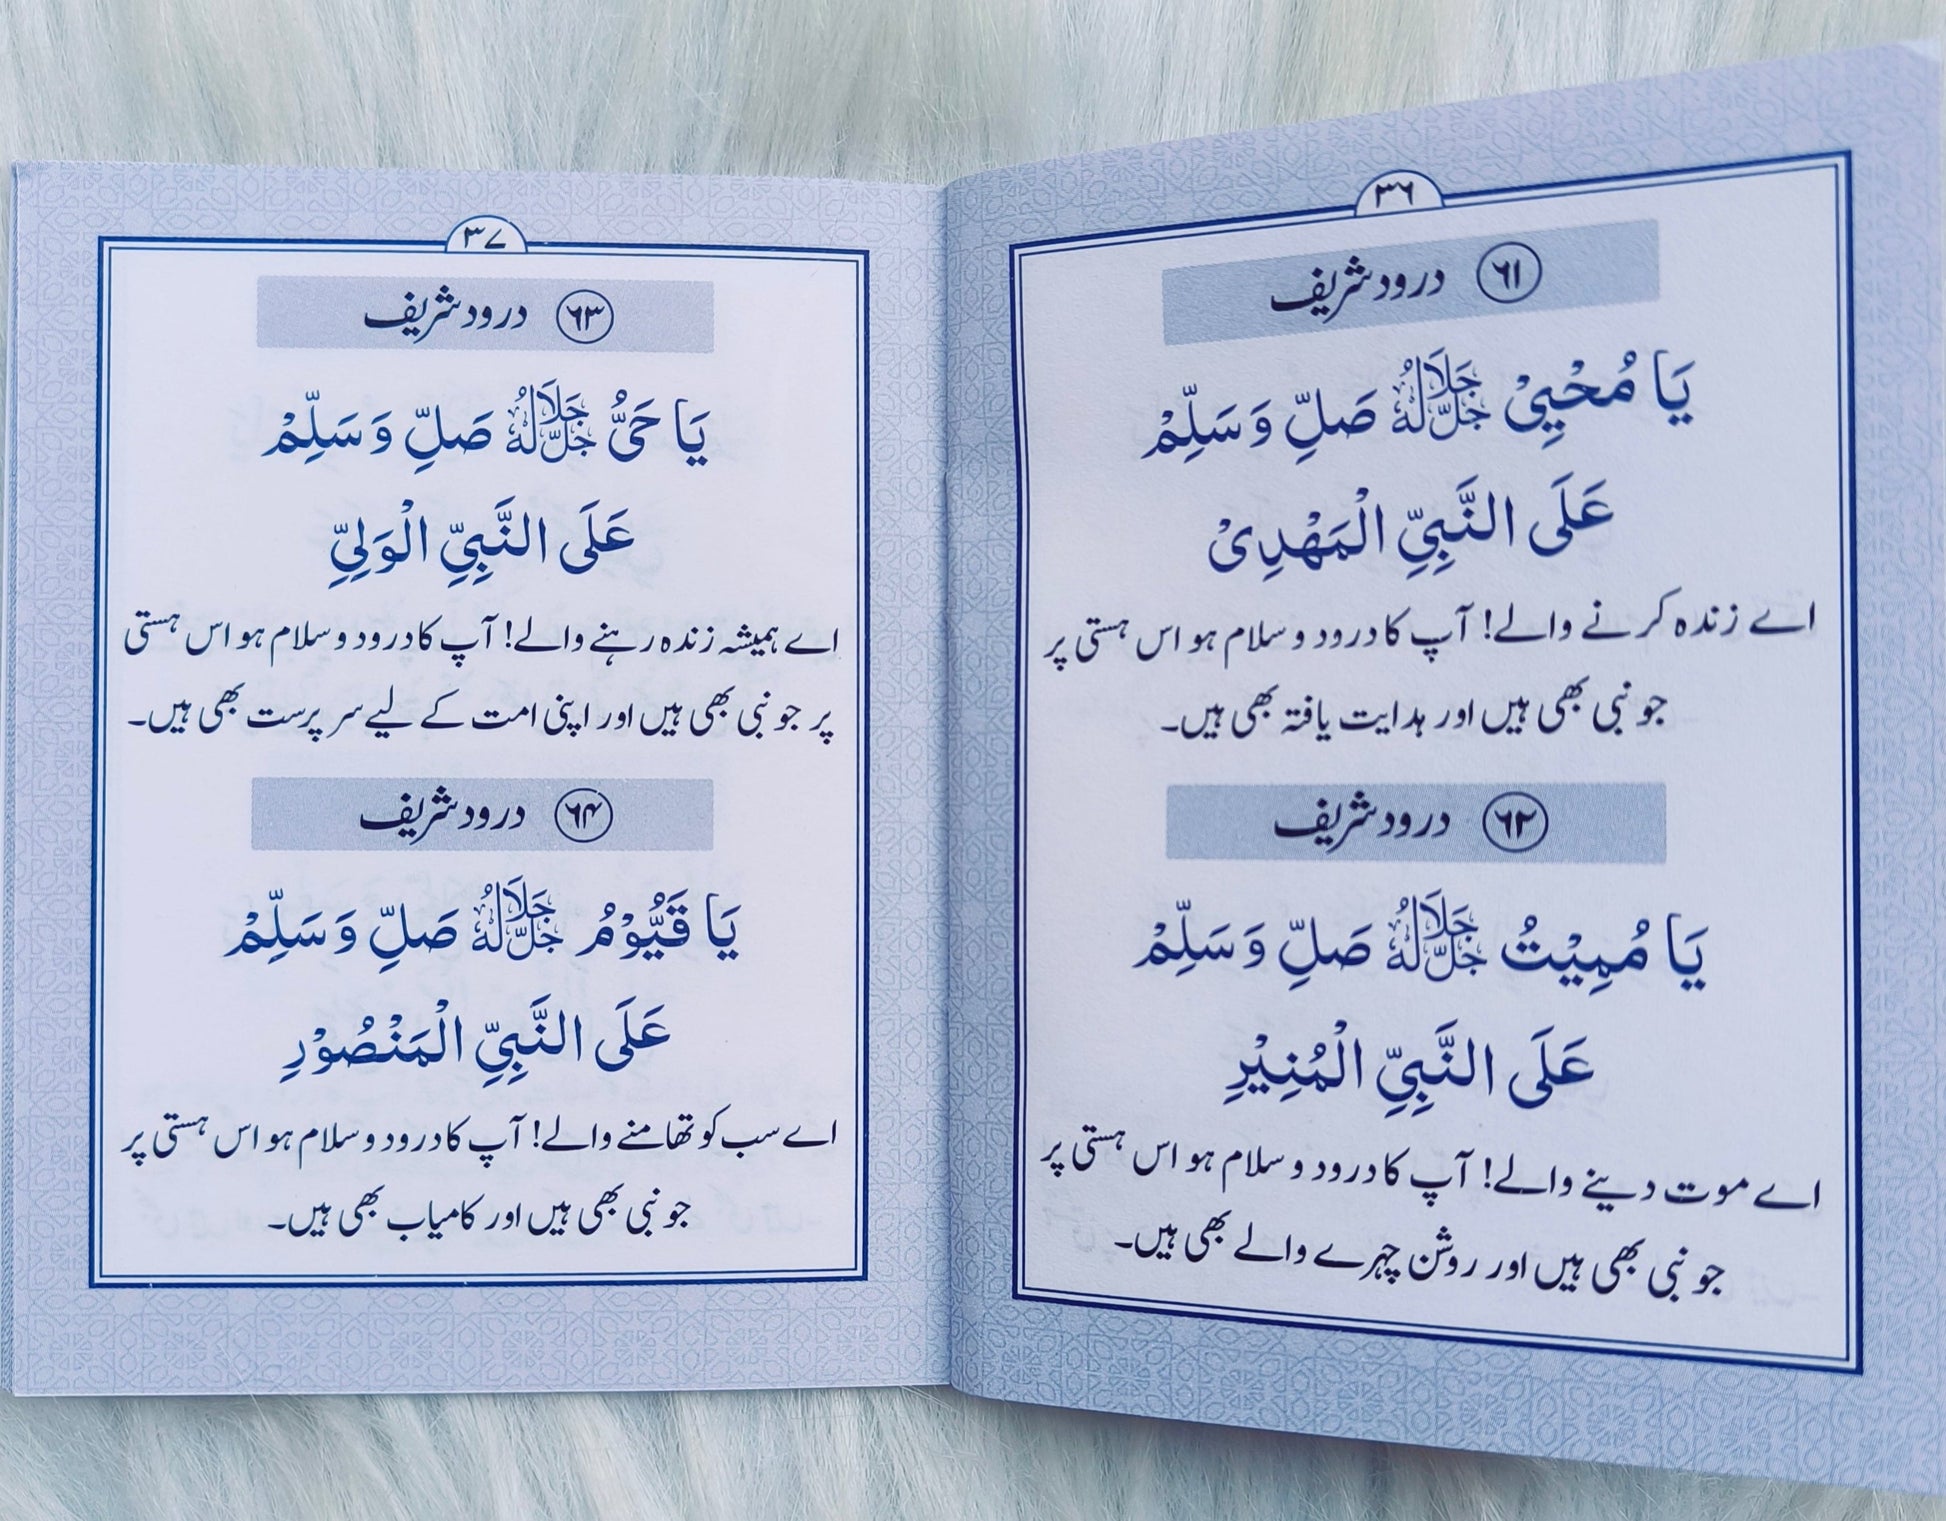 ۳۶
۶۱ درود شریف
يَا مُحْيِيْ جَلَّ جَلَالُهٗ صَلِّ وَسَلِّمْ
عَلَى النَّبِيِّ الْمَهْدِىْ
اے زندہ کرنے والے! آپ کا درود و سلام ہو اس ہستی پر
جو نبی بھی ہیں اور ہدایت یافتہ بھی ہیں۔
۶۲ درود شریف
يَا مُمِيْتُ جَلَّ جَلَالُهٗ صَلِّ وَسَلِّمْ
عَلَى النَّبِيِّ الْمُنِيْرِ
اے موت دینے والے! آپ کا درود و سلام ہو اس ہستی پر
جو نبی بھی ہیں اور روشن چہرے والے بھی ہیں۔
۳۷
۶۳ درود شریف
يَا حَىُّ جَلَّ جَلَالُهٗ صَلِّ وَسَلِّمْ
عَلَى النَّبِيِّ الْوَلِيِّ
اے ہمیشہ زندہ رہنے والے! آپ کا درود و سلام ہو اس ہستی
پر جو نبی بھی ہیں اور اپنی امت کے لیے سرپرست بھی ہیں۔
۶۴ درود شریف
يَا قَيُّوْمُ جَلَّ جَلَالُهٗ صَلِّ وَسَلِّمْ
عَلَى النَّبِيِّ الْمَنْصُوْرِ
اے سب کو تھامنے والے! آپ کا درود و سلام ہو اس ہستی پر
جو نبی بھی ہیں اور کامیاب بھی ہیں۔